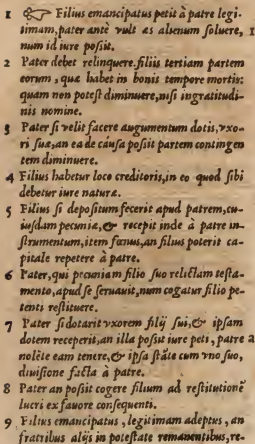 1 ☞ Filius emancipatus petit à patre legi-
timam, pater antè vult as alienum soluere, 1
num id iure posit.
2 Pater debet relinquere filiis tertiam partem
eorum, quæ habet in bonis tempore mortis:
quam non potest diminuere, nisi ingratitudi-
nis nomine.
3 Pater si velit facere augumentum dotis, vxo-
ri sua, an ea de causa posit partem contingen
tem diminuere.
4 Filius habetur loco creditoris, in eo quod sibi
debetur iure natura.
5 Filius si depositum fecerit apud patrem, cu-
iusdam pecunia, & recepit inde à patre in-
strumentum, item fœnus, an filius poterit ca-
pitale repetere à patre.
6 Pater, qui pecuniam filio suo relictam testa-
mento, apud se seruauit, num cogatur filio pe-
tenti restituere.
7 Pater si dotarit vxorem filij sui, & ipsam
dotem receperit, an illa posit iure peti, patre 2
nolēte eam tenere, & ipsa state cum vno suo,
diuisione facta à patre.
8 Pater an posit cogere filium ad restitutionē
lucri ex fauore consequenti.
9 Filius emancipatus, legitimam adeptus, an
fratribus alijs in potestate remanentibus, re-